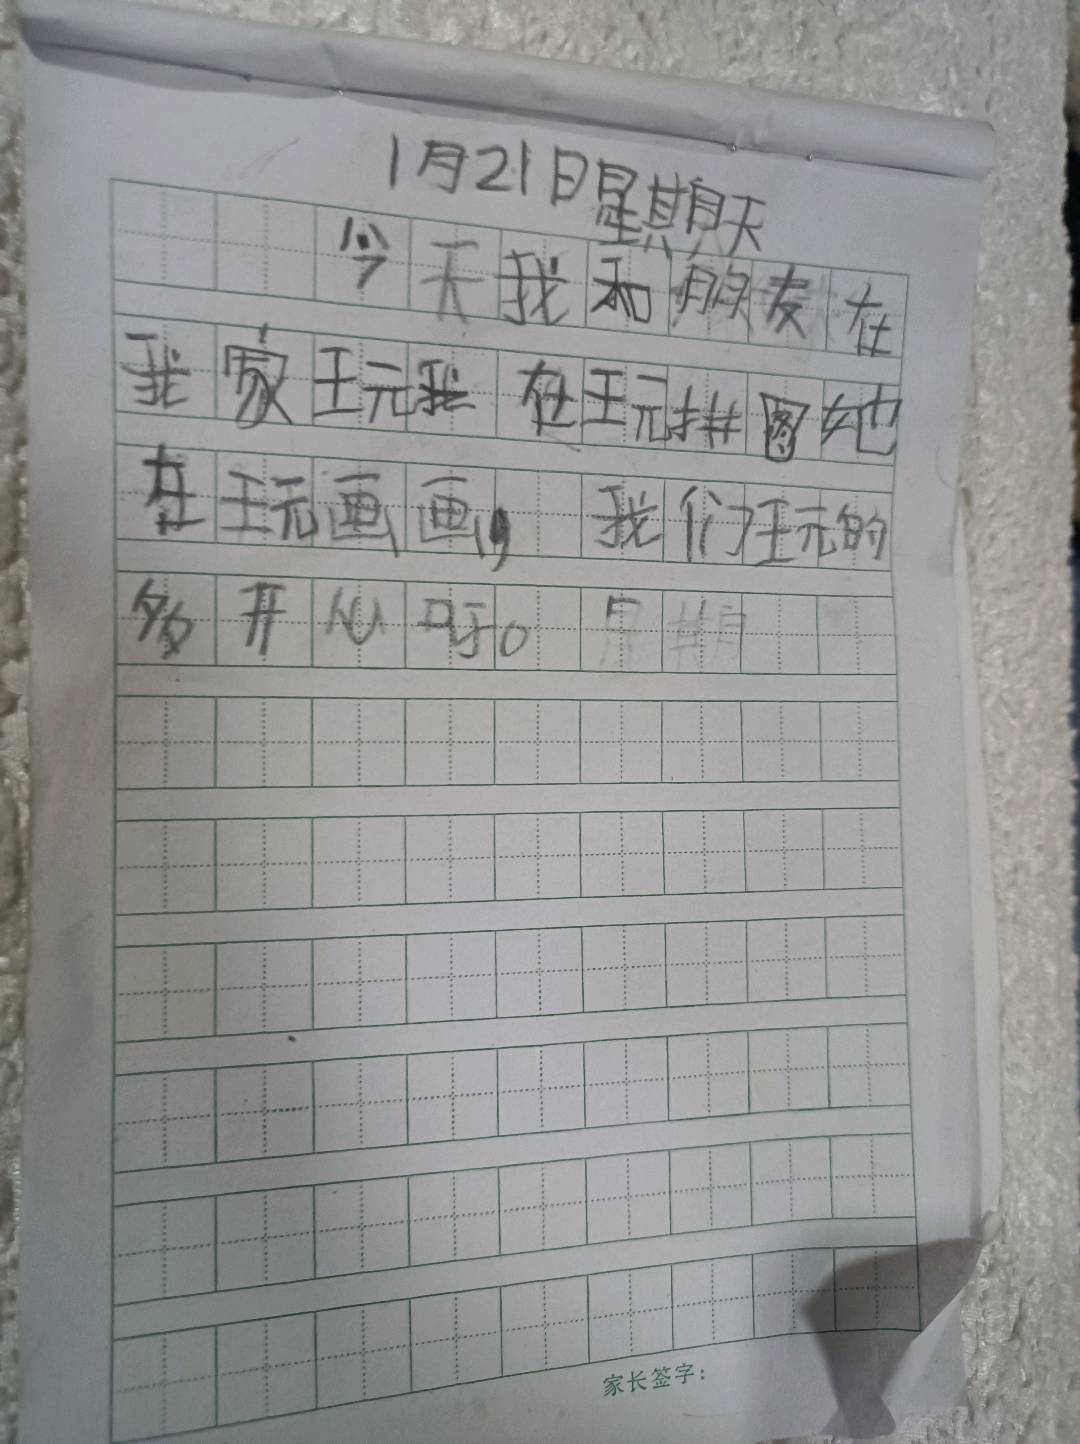 1月21日星期天
今天我和朋友在
我家玩我在玩拼图她
在玩画画,我们玩的
多开心呀。
家长签字: